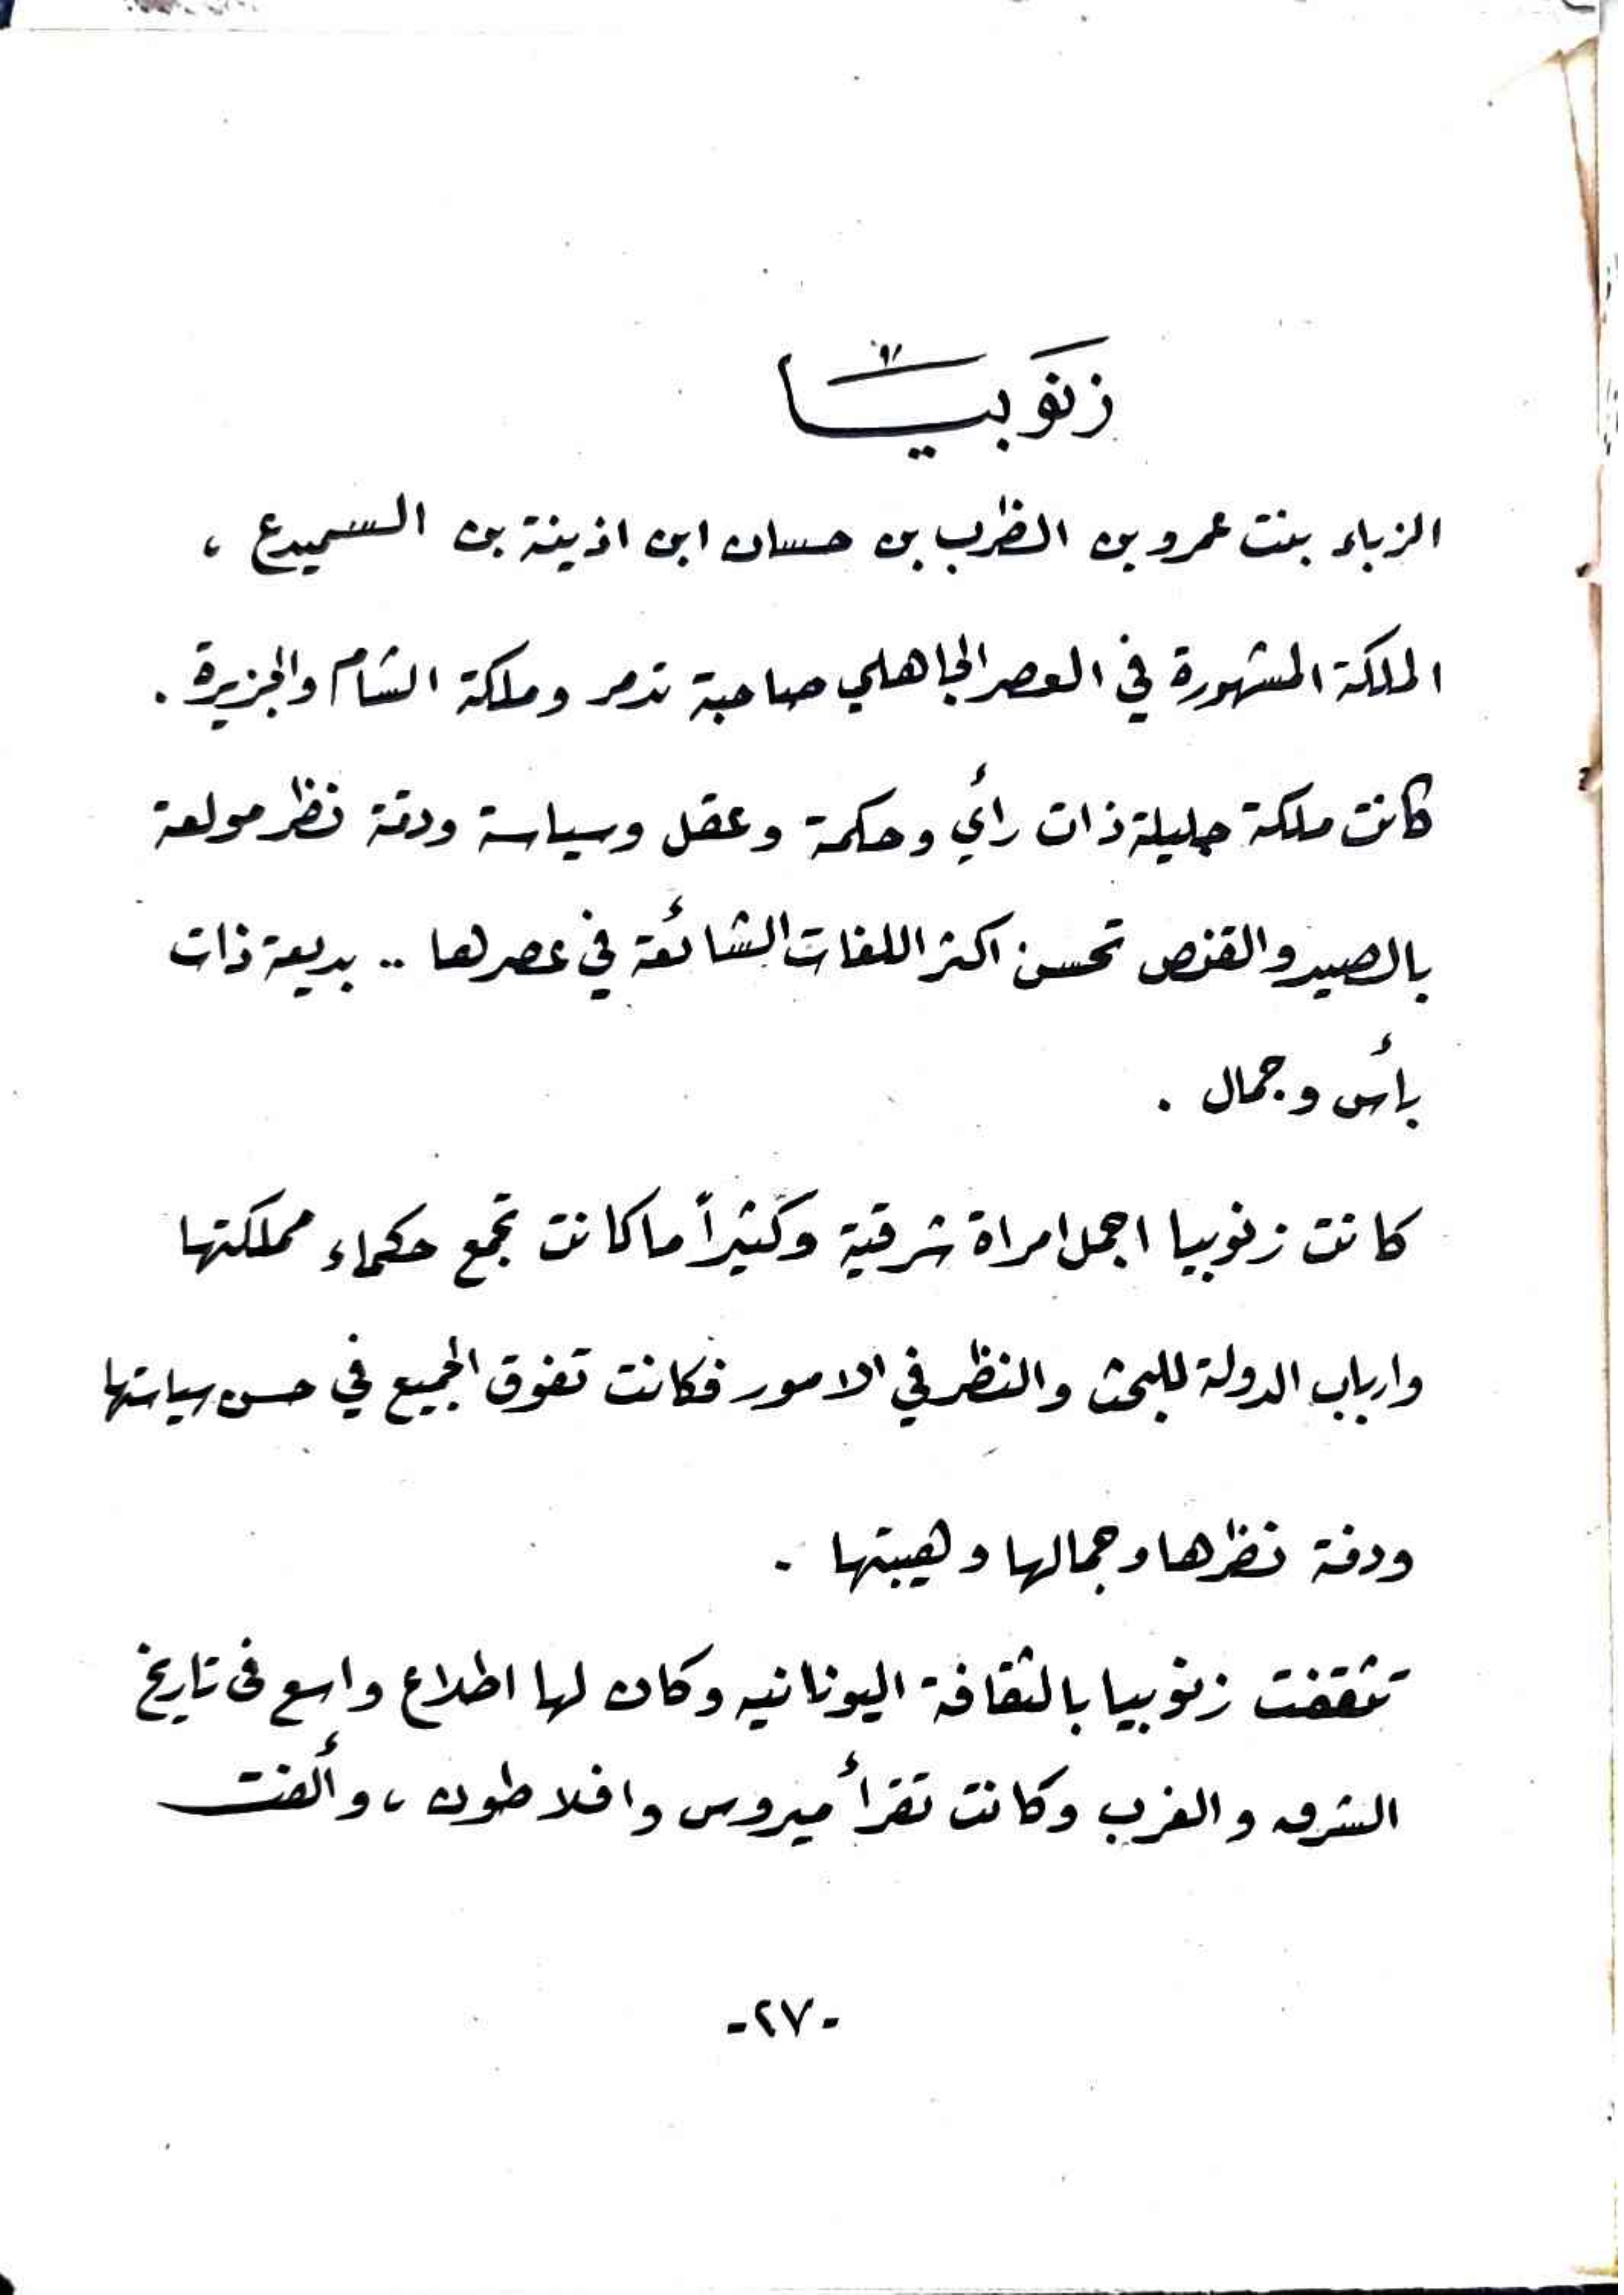 زنوبيا
الزباء بنت عمرو بن الظرب بن حسان ابن اذينة بن السميدع ،
الملكة المشهورة في العصر الجاهلي صاحبة تدمر وملكة الشام والجزيرة .
كانت ملكة جليلة ذات رأي وحكمة وعقل وسياسة ودقة نظر مولعة
بالصيد والقنص تحسن اكثر اللغات الشائعة في عصرها .. بديعة ذات
بأس وجمال .
كانت زنوبيا اجمل امراة شرقية وكثيراً ما كانت تجمع حكماء مملكتها
وارباب الدولة للبحث والنظر في الامور فكانت تفوق الجميع في حسن سياستها
ودقة نظرها وجمالها وهيبتها .
تثقفت زنوبيا بالثقافة اليونانيه وكان لها اطلاع واسع فى تاريخ
الشرق والغرب وكانت تقرأ ميروس وافلاطون ، وألفت
-٢٧-